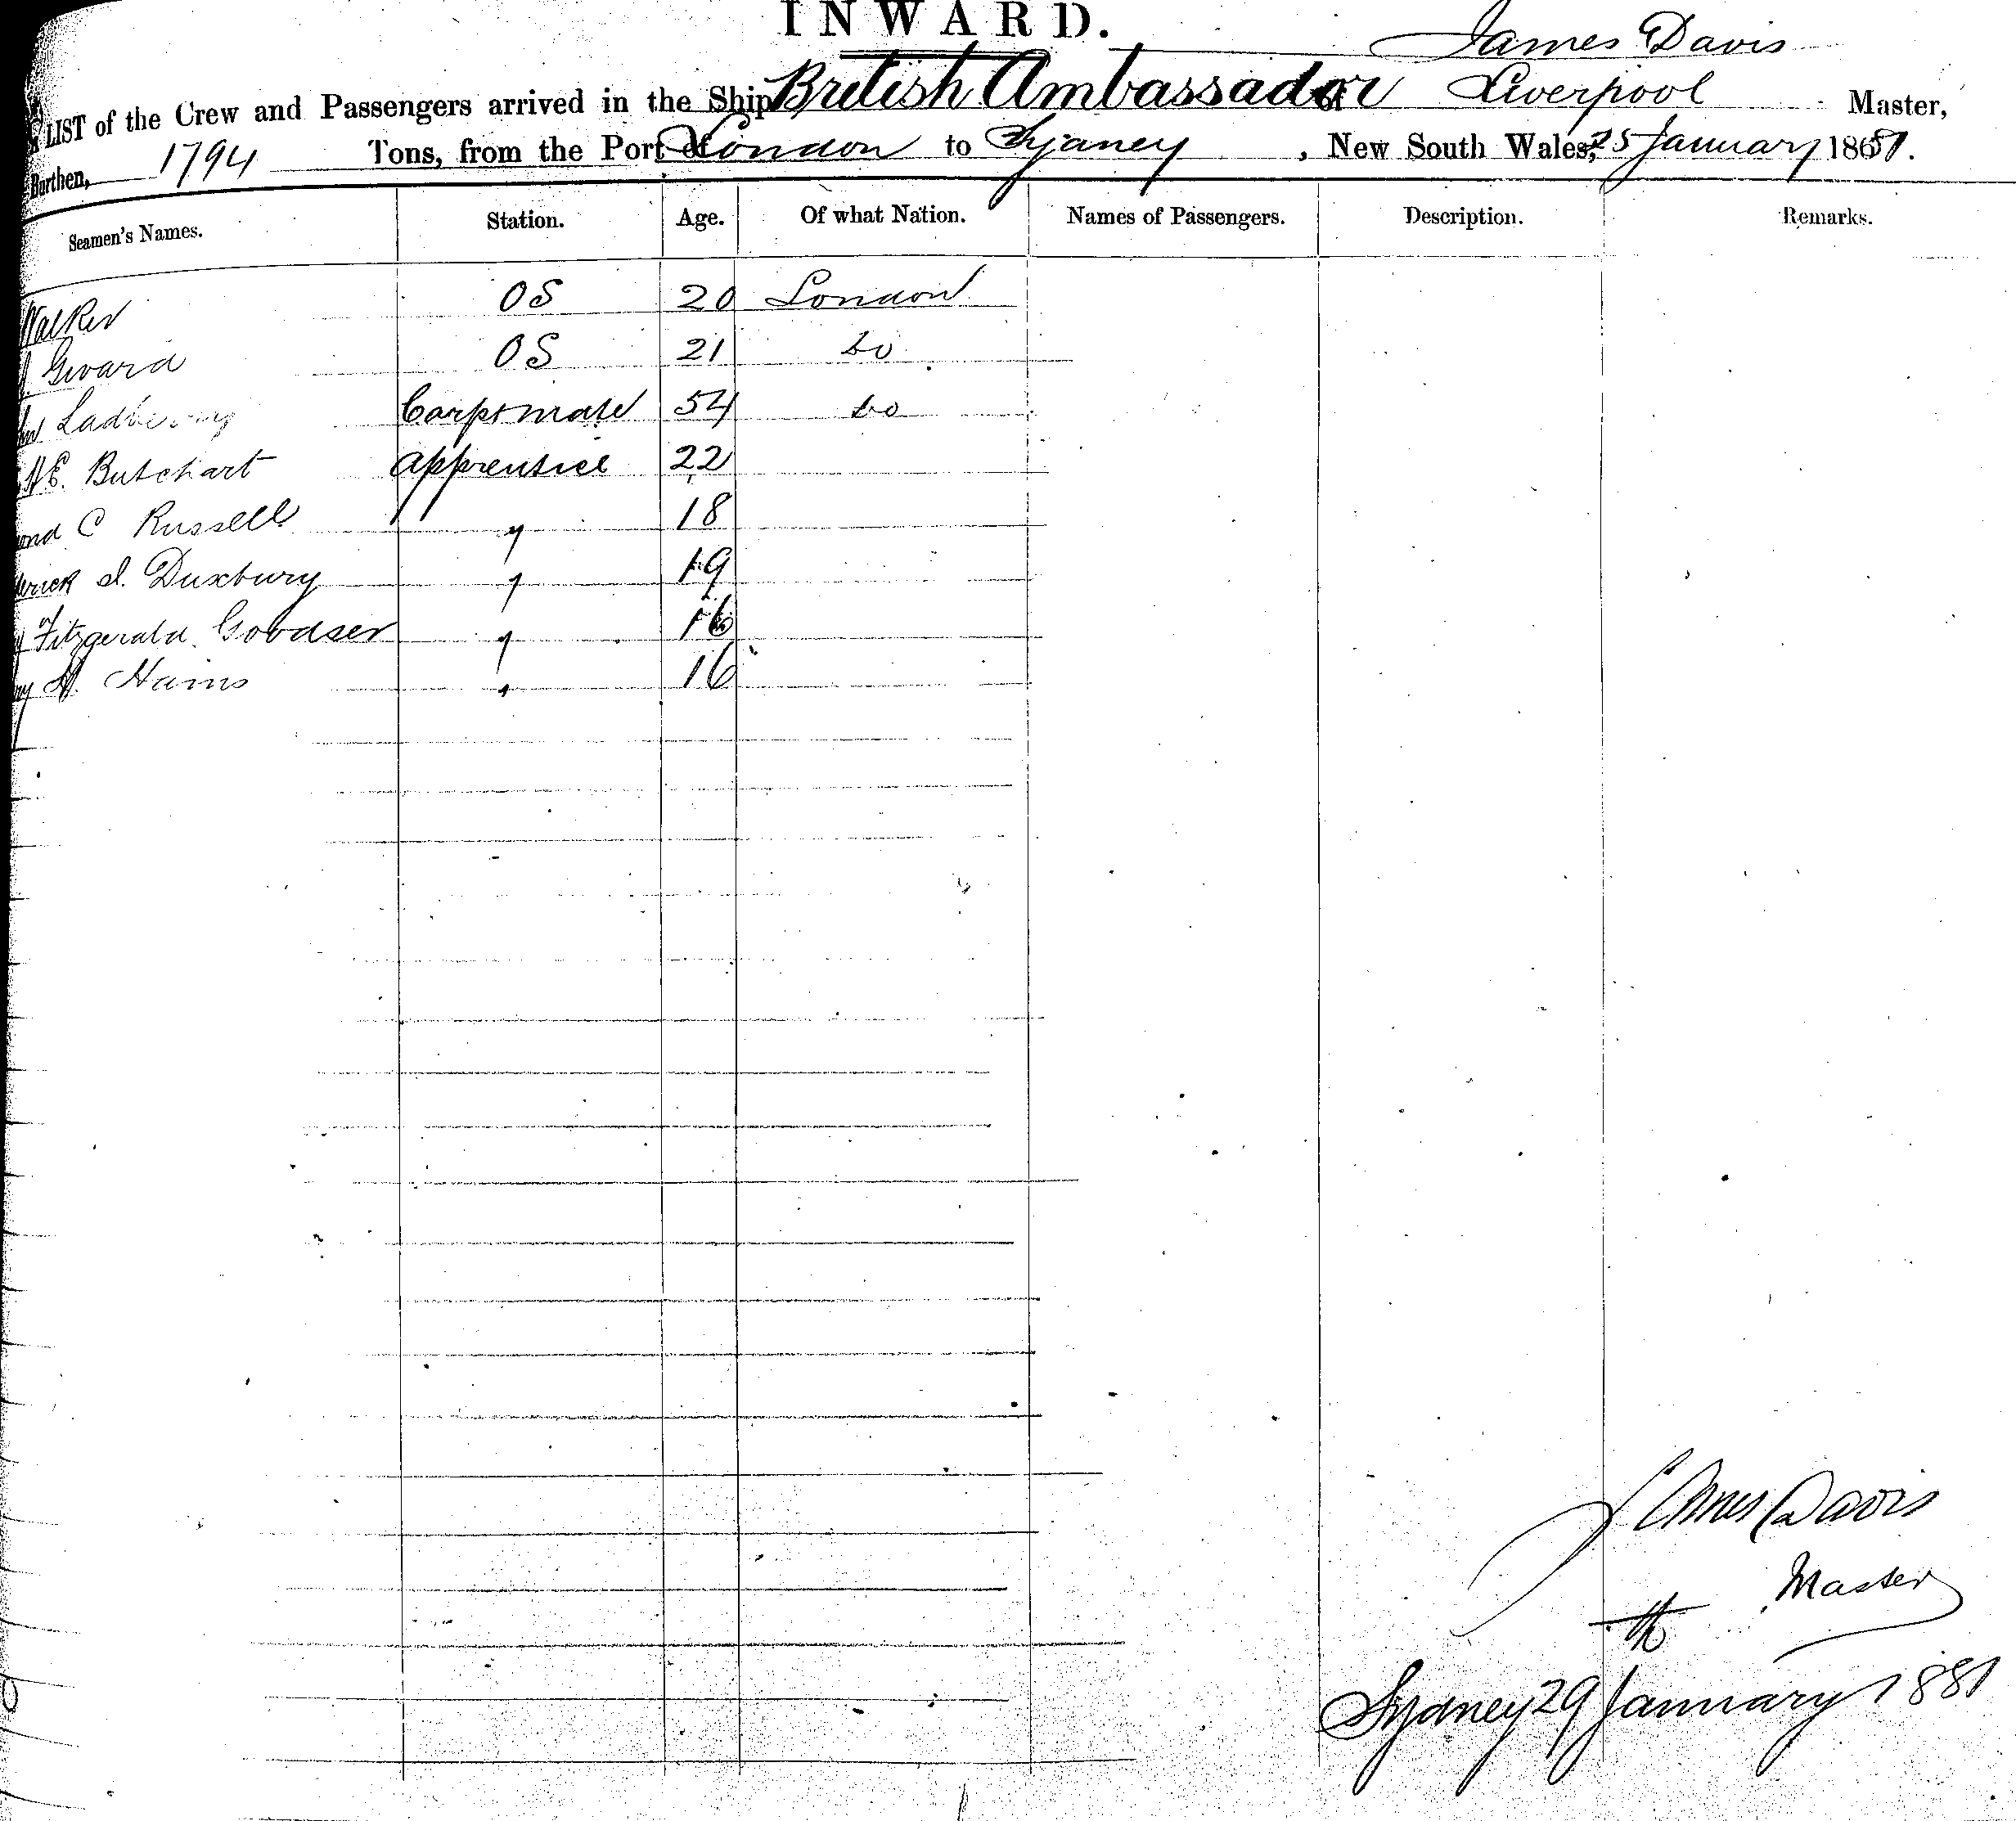 INWARD.
James Davis
LIST of the Crew and Passengers arrived in the Ship British Ambassador of Liverpool Master,
Burthen, 1794 Tons, from the Port of London to Sydney, New South Wales, 25 January 1881.
Seamen's Names. Station. Age. Of what Nation. Names of Passengers. Description. Remarks.
Walker OS 20 London
OS 21 Do
Carps mate 54 Do
Butchart Apprentice 22
C Russell " 18
Duxbury " 19
Fitzgerald " 16
" 16
James Davis
Master
Sydney 29 January 1881